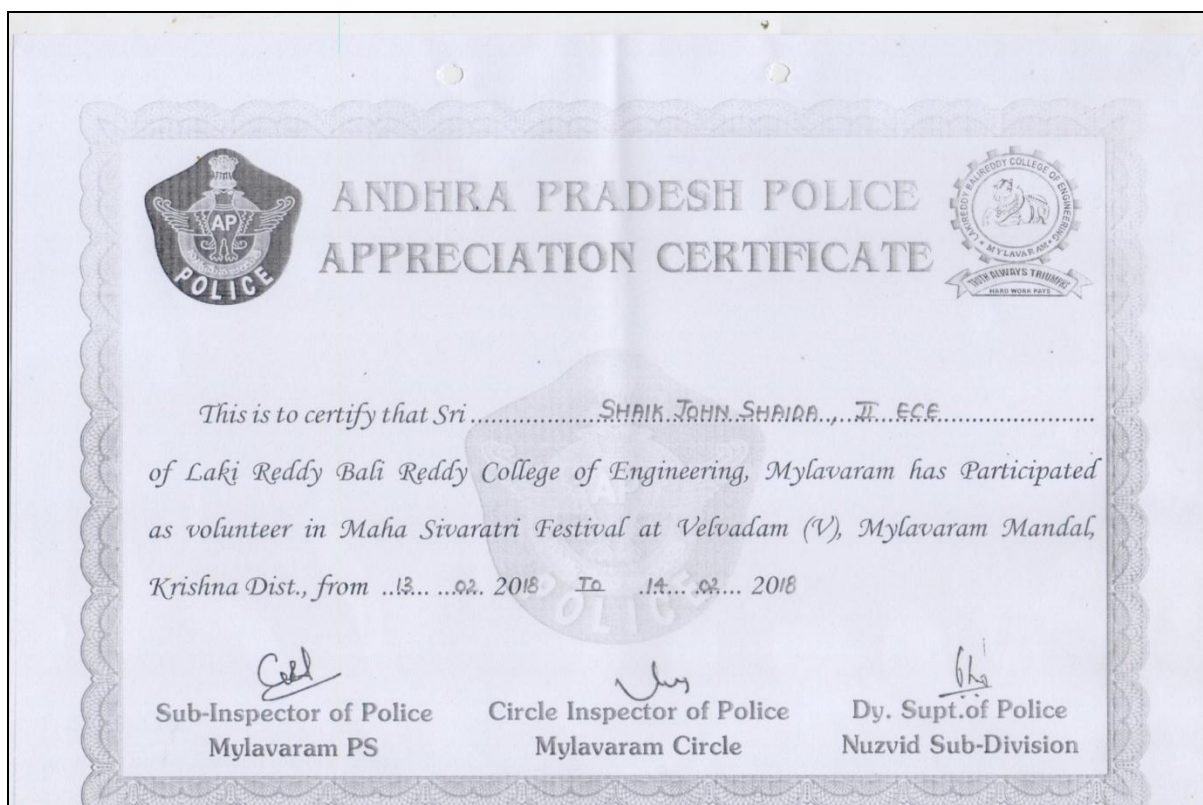 ANDHRA PRADESH POLICE
APPRECIATION CERTIFICATE
AP
POLICE
LAKIREDDY BALIREDDY COLLEGE OF ENGINEERING
MYLAVARAM
TRUTH ALWAYS TRIUMPHS
HARD WORK PAYS
This is to certify that Sri .................. SHAIK JOHN SHAIDA.., ..II.. ECE..........................
of Laki Reddy Bali Reddy College of Engineering, Mylavaram has Participated
as volunteer in Maha Sivaratri Festival at Velvadam (V), Mylavaram Mandal,
Krishna Dist., from ..13... ...02. 2018 TO .14.... .02... 2018
AP
POLICE
Sub-Inspector of Police
Mylavaram PS
Circle Inspector of Police
Mylavaram Circle
Dy. Supt.of Police
Nuzvid Sub-Division